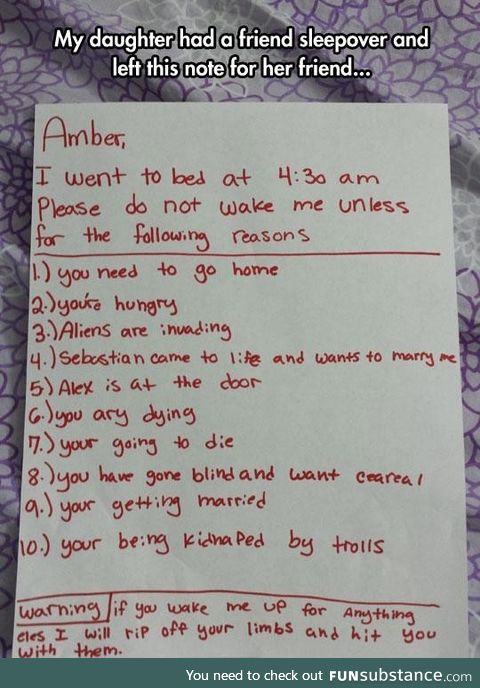 My daughter had a friend sleepover and
left this note for her friend...
Amber,
I went to bed at 4:30 am
Please do not wake me unless
for the following reasons
1.) you need to go home
2.) you're hungry
3.) Aliens are invading
4.) Sebastian came to life and wants to marry me
5) Alex is at the door
6.) you ary dying
7.) your going to die
8.) you have gone blind and want ceareal
9.) your getting married
10.) your being kidnaped by trolls
warning if you wake me up for anything
eles I will rip off your limbs and hit you
with them.
You need to check out FUNsubstance.com